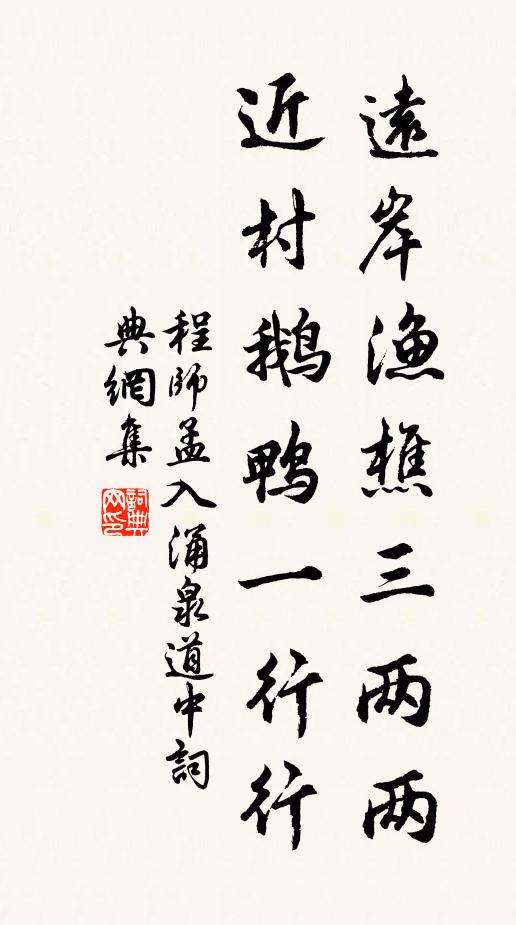 遠岸漁樵三两两
近村鹅鴨一行行
程師孟入涌泉道中詞
典網集
詞典
网印